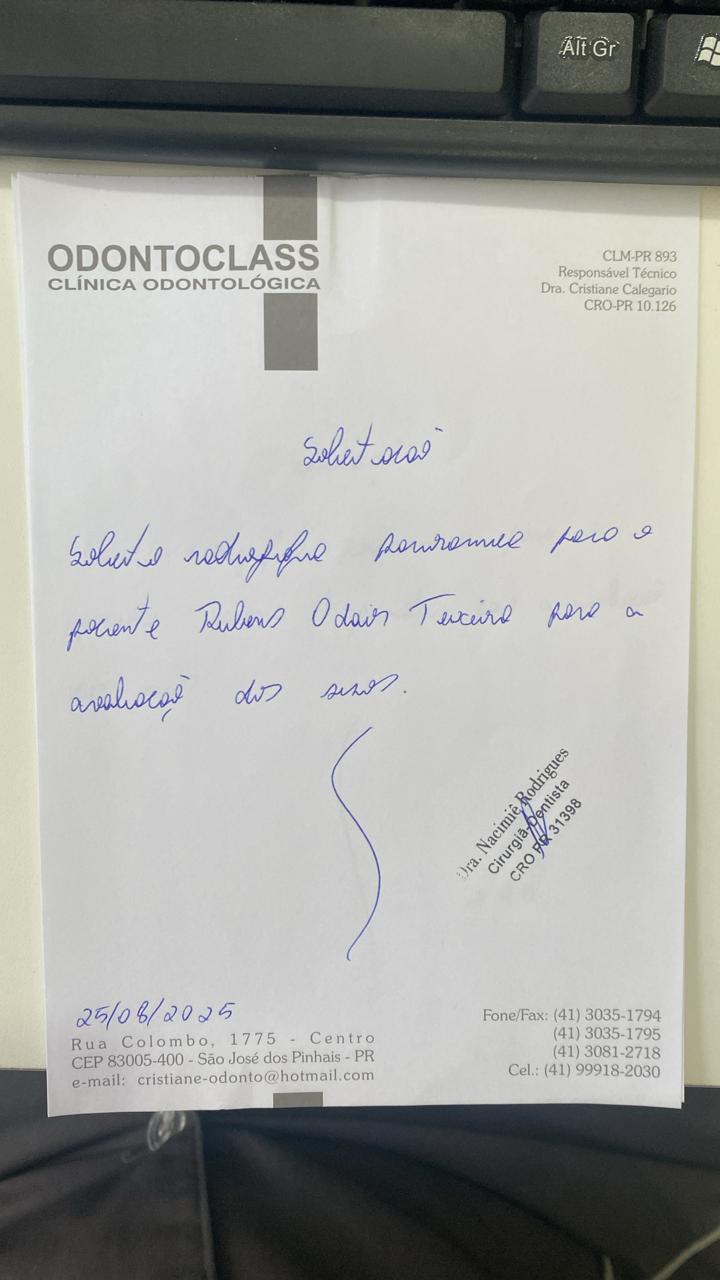 Alt Gr
ODONTOCLASS
CLÍNICA ODONTOLÓGICA
CLM-PR 893
Responsável Técnico
Dra. Cristiane Calegario
CRO-PR 10.126
Solicitação
Solicito radiografia panoramica para o
paciente Rubens Odair Teixeira para a
avaliação dos sisos.
Dra. Nacimiê Rodrigues
Cirurgiã-Dentista
CRO PR 31398
25/08/2025
Rua Colombo, 1775 - Centro
CEP 83005-400 - São José dos Pinhais - PR
e-mail: cristiane-odonto@hotmail.com
Fone/Fax: (41) 3035-1794
(41) 3035-1795
(41) 3081-2718
Cel.: (41) 99918-2030